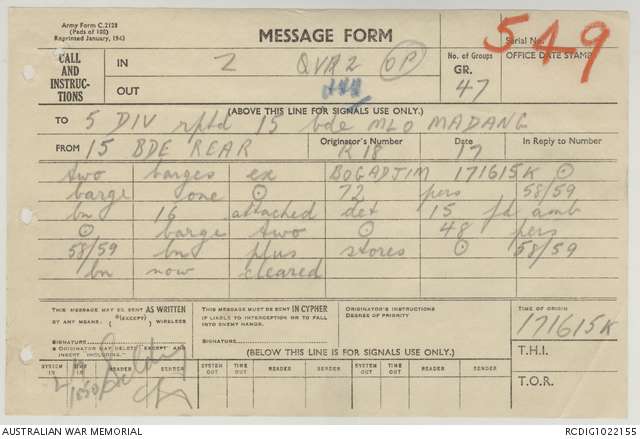 Army Form C.2128
(Pads of 100)
Reprinted January, 1943
MESSAGE FORM
Serial No.
549
CALL AND INSTRUCTIONS
IN
Z QVR2 OP
No. of Groups
GR.
47
OFFICE DATE STAMP
OUT
(ABOVE THIS LINE FOR SIGNALS USE ONLY.)
TO 5 DIV rptd 15 bde MLO MADANG
FROM 15 BDE REAR
Originator's Number
K18
Date
17
In Reply to Number
two barges ex BOGADJIM 171615K ⊙
barge one ⊙ 72 pers 58/59
bn 16 attached det 15 fd amb
⊙ barge two ⊙ 48 pers
58/59 bn plus stores ⊙ 58/59
bn now cleared
THIS MESSAGE MAY BE SENT AS WRITTEN
BY ANY MEANS. (EXCEPT) WIRELESS
SIGNATURE
ORIGINATOR MAY DELETE "EXCEPT" AND INSERT "INCLUDING."
THIS MESSAGE MUST BE SENT IN CYPHER
IF LIABLE TO INTERCEPTION OR TO FALL
INTO ENEMY HANDS.
SIGNATURE
ORIGINATOR'S INSTRUCTIONS
DEGREE OF PRIORITY
TIME OF ORIGIN
171615K
T.H.I.
T.O.R.
(BELOW THIS LINE IS FOR SIGNALS USE ONLY.)
SYSTEM IN TIME IN READER SENDER SYSTEM OUT TIME OUT READER SENDER SYSTEM OUT TIME OUT READER SENDER
AUSTRALIAN WAR MEMORIAL
RCDIG1022155